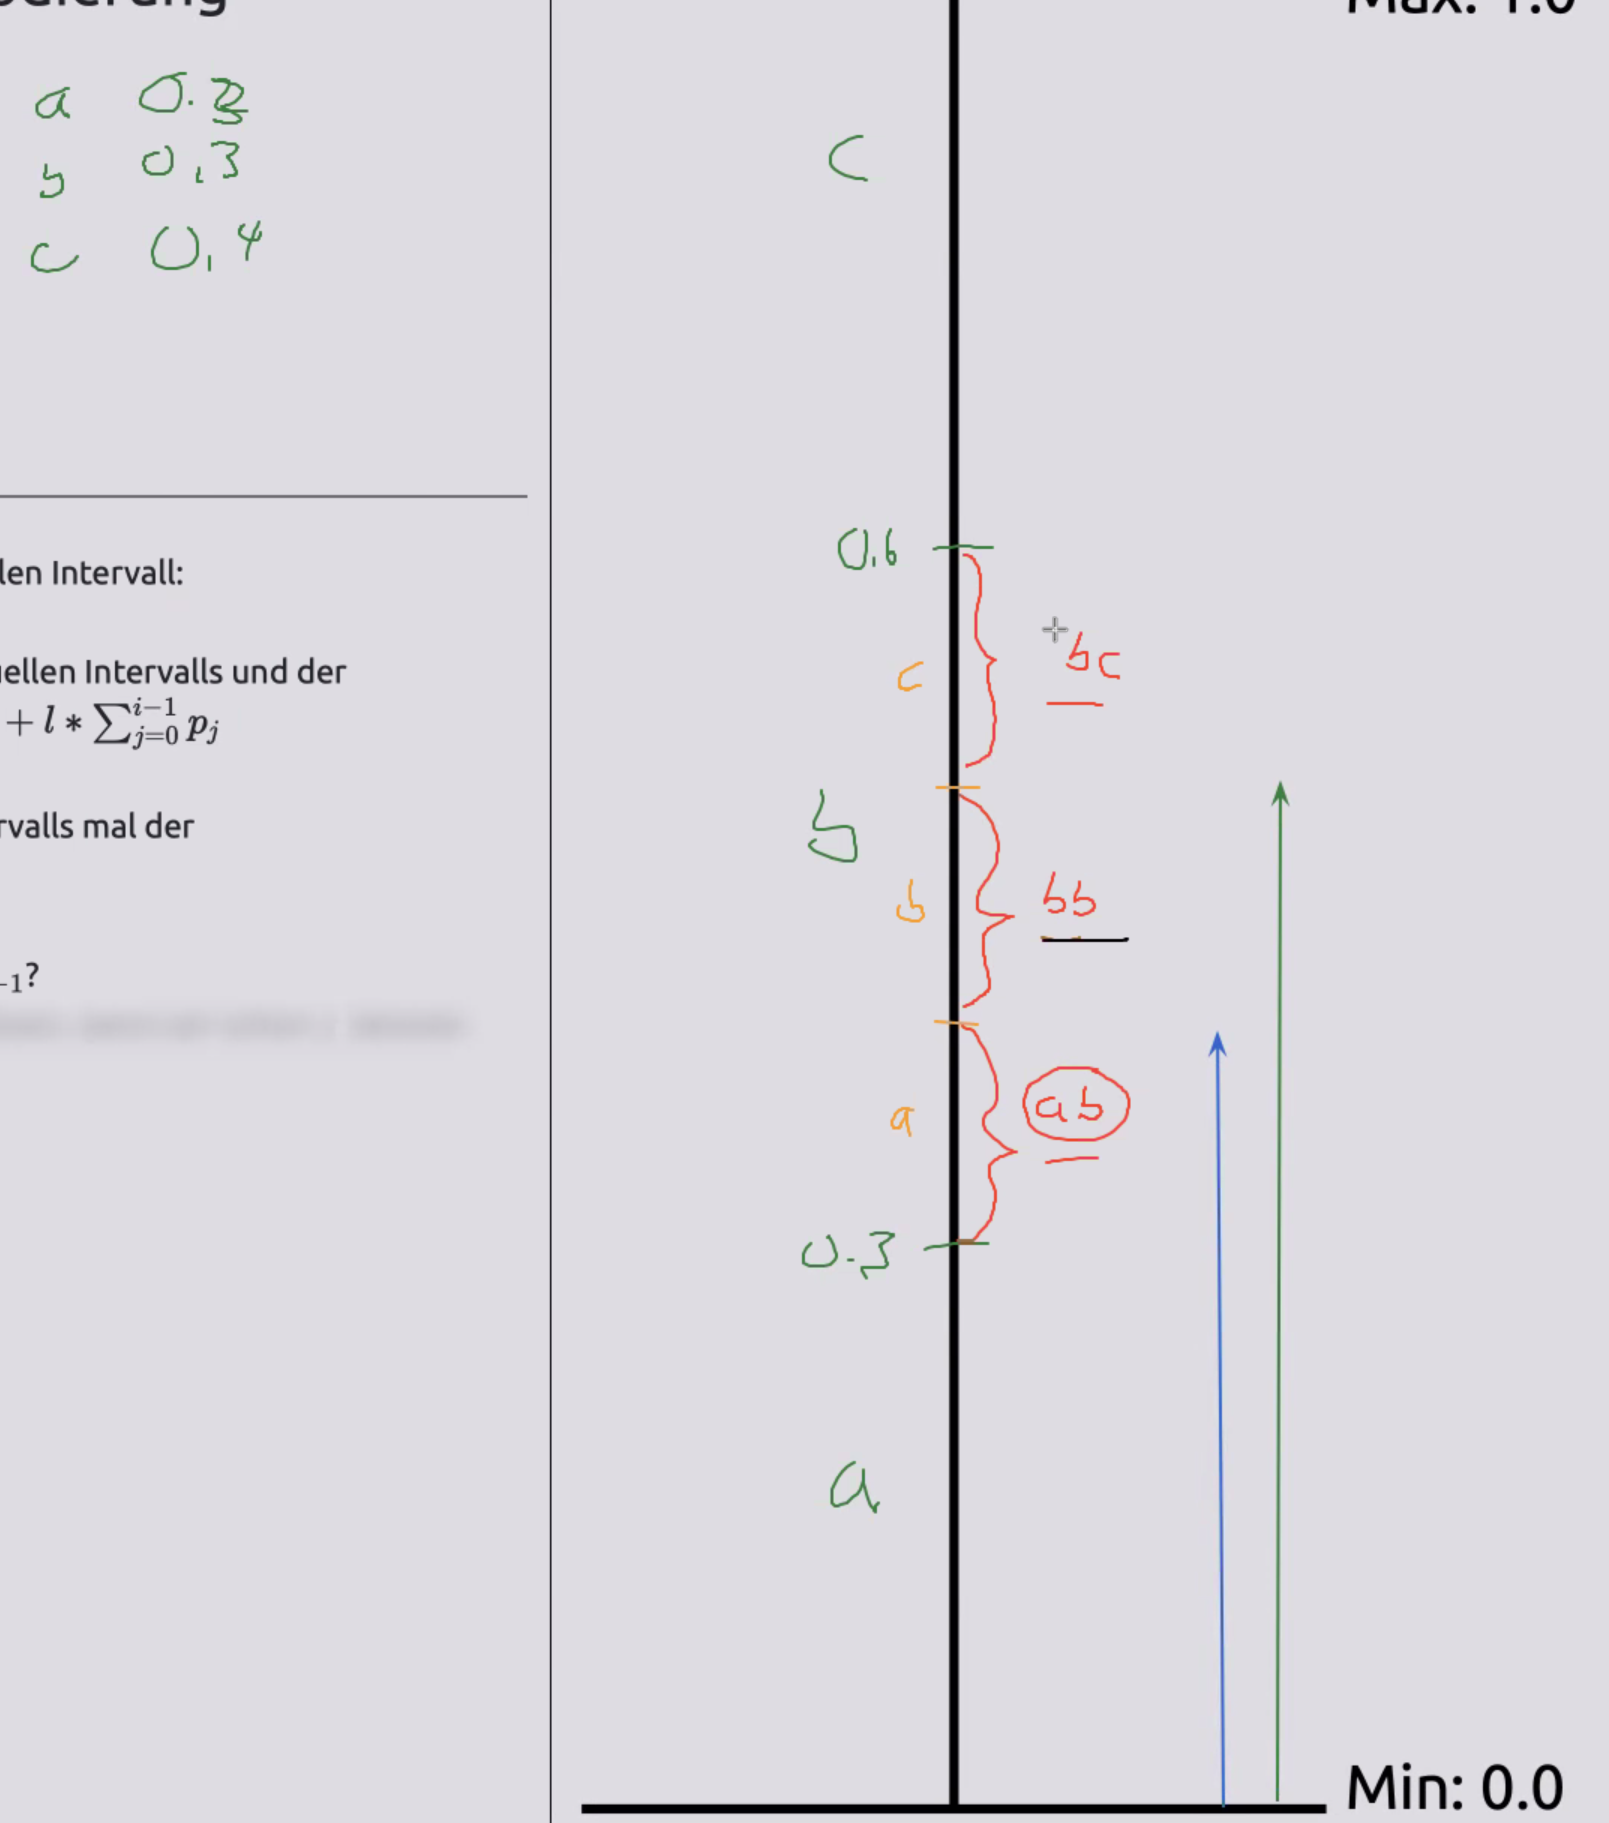 a 0.3
b 0,3
c 0,4
len Intervall:
ellen Intervalls und der
+ l * ∑_{j=0}^{i−1} p_j
rvalls mal der
−1?
C
0.6
c
bc
b
b
bb
a
ab
0.3
a
Min: 0.0